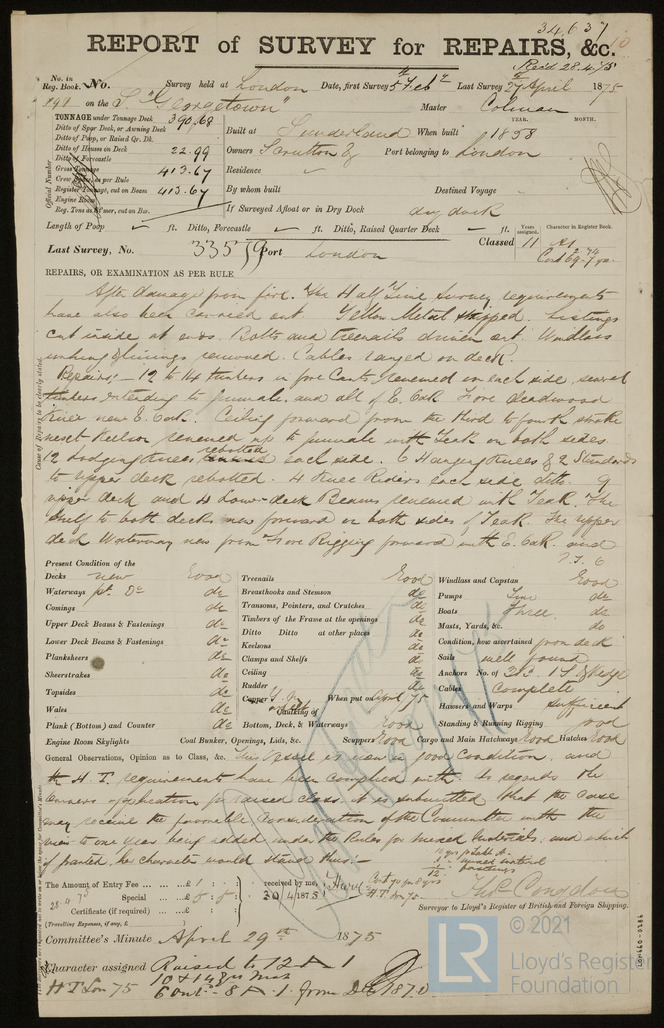 34,637
10
REPORT of SURVEY for REPAIRS, &c.
Recd 28.4.75
No. in Reg. Book. No. Survey held at London Date, first Survey 5th Feby Last Survey 27th April 1875
191 on the S. "Georgetown" Master Colman
TONNAGE under Tonnage Deck 390.68
Ditto of Spar Deck, or Awning Deck
Ditto of Poop, or Raised Qr. Dk.
Ditto of Houses on Deck 22.99
Ditto of Forecastle
Gross Tonnage 413.67
Crew Space, as per Rule
Register Tonnage, cut on Beam 413.67
Engine Room
Reg. Tons as Steamer, cut on Bm.
Official Number
YEAR. MONTH.
Built at Sunderland When built 1858
Owners Scrutton & Co Port belonging to London
Residence
By whom built Destined Voyage
If Surveyed Afloat or in Dry Dock dry dock
Length of Poop ft. Ditto, Forecastle ft. Ditto, Raised Quarter Deck ft.
Years assigned. Character in Register Book.
Last Survey, No. 33519 Port London Classed 11 A1
Cont 69-7 yrs.
REPAIRS, OR EXAMINATION AS PER RULE
After damage from fire. The Half Time Survey requirements
have also been carried out. Yellow Metal stripped. Listings
cut inside at ends. Bolts and treenails driven out. Windlass
unhung & linings removed. Cables ranged on deck.
Repairs:— 12 to 14 timbers in fore Cants, renewed on each side, several
timbers extending to gunwale, and all of E. Oak. Fore deadwood
Knee new E. Oak. Ceiling forward from the third to fourth strake
next Keelson renewed up to gunwale with Teak on both sides
12 Lodging Knees rebolted each side. 6 Hanging Knees & 2 Standards
to upper deck rebolted. 4 Knee Riders each side ditto. 9
upper deck and 4 Lower-deck Beams renewed with Teak. The
shelf to both decks new forward on both sides of Teak. The upper
deck Waterway new from Fore Rigging forward with E. Oak and
P.T.O
Cause of Repairs to be clearly stated.
Present Condition of the
Decks new Good
Waterways pt. Do do
Comings do
Upper Deck Beams & Fastenings do
Lower Deck Beams & Fastenings do
Planksheers do
Sheerstrakes do
Topsides do
Wales do
Plank (Bottom) and Counter do
Treenails Good
Breasthooks and Stemson do
Transoms, Pointers, and Crutches do
Timbers of the Frame at the openings do
Ditto Ditto at other places do
Keelsons do
Clamps and Shelfs do
Ceiling do
Rudder do
Copper When put on April 75
Caulking of
Bottom, Deck, & Waterways Good
Windlass and Capstan Good
Pumps Two do
Boats Three do
Masts, Yards, &c. do
Condition, how ascertained from deck
Sails well found
Anchors No. of
Cables Complete
Hawsers and Warps sufficient
Standing & Running Rigging good
Engine Room Skylights Coal Bunker, Openings, Lids, &c. Scuppers Good Cargo and Main Hatchways Good Hatches Good
General Observations, Opinion as to Class, &c. This vessel is now in good condition, and
the H. T. requirements have been complied with. As regards the
Owners application for raised class, it is submitted that the case
may receive the favorable Consideration of the Committee with the
view to one year being added under the Rules for mixed Materials, and which
if granted, her character would stand thus:—
12
The Amount of Entry Fee £1 : :
Special £5 : 5 :
28.4.75
Certificate (if required)
(Travelling Expenses, if any, £ )
received by me,
30/4/1875
Cont 70 for 8 yrs
H.T. Lon 75
Thos Congdon
Surveyor to Lloyd's Register of British and Foreign Shipping.
Committee's Minute April 29th 1875
Character assigned Raised to 12 A 1
HT Lon 75
6 Cont - 8 A. 1. from Dec 1870
LR
© 2021
Lloyd's Register
Foundation